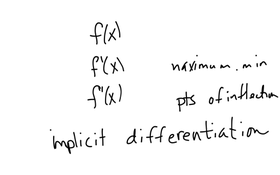 f(x)
f'(x) maximum.min
f"(x) pts of inflection
implicit differentiation